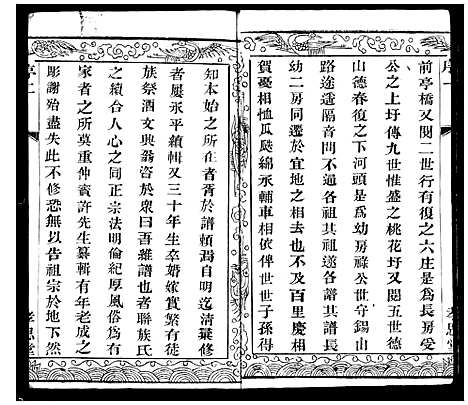 前亭橋又閱二世行有復之六庄是爲長房受
公之上圩傳九世惟盛之桃花圩又閱五世德
山德春復之下河頭是爲幼房祿公世守錫山
路途遙隔音問罕通各祖其祖遂各譜其譜長
幼二房同遷於宜地之相去也不及百里慶相
賀憂相恤瓜瓞綿永輔車相依俾世世子孫得
知本始之所在者胥於譜頼焉自明迄清葉修
者屢永平續輯又三十年生卒婚嫁實繁有徒
族祭酒文興翁咨於衆曰吾維譜也者聯族氏
之繢合人心之同正宗法明倫紀厚風俗爲有
家者之所莫重仲賓許先生纂輯有年老成之
彫謝殆盡失此不修恐無以告祖宗於地下然
序二
孝思堂